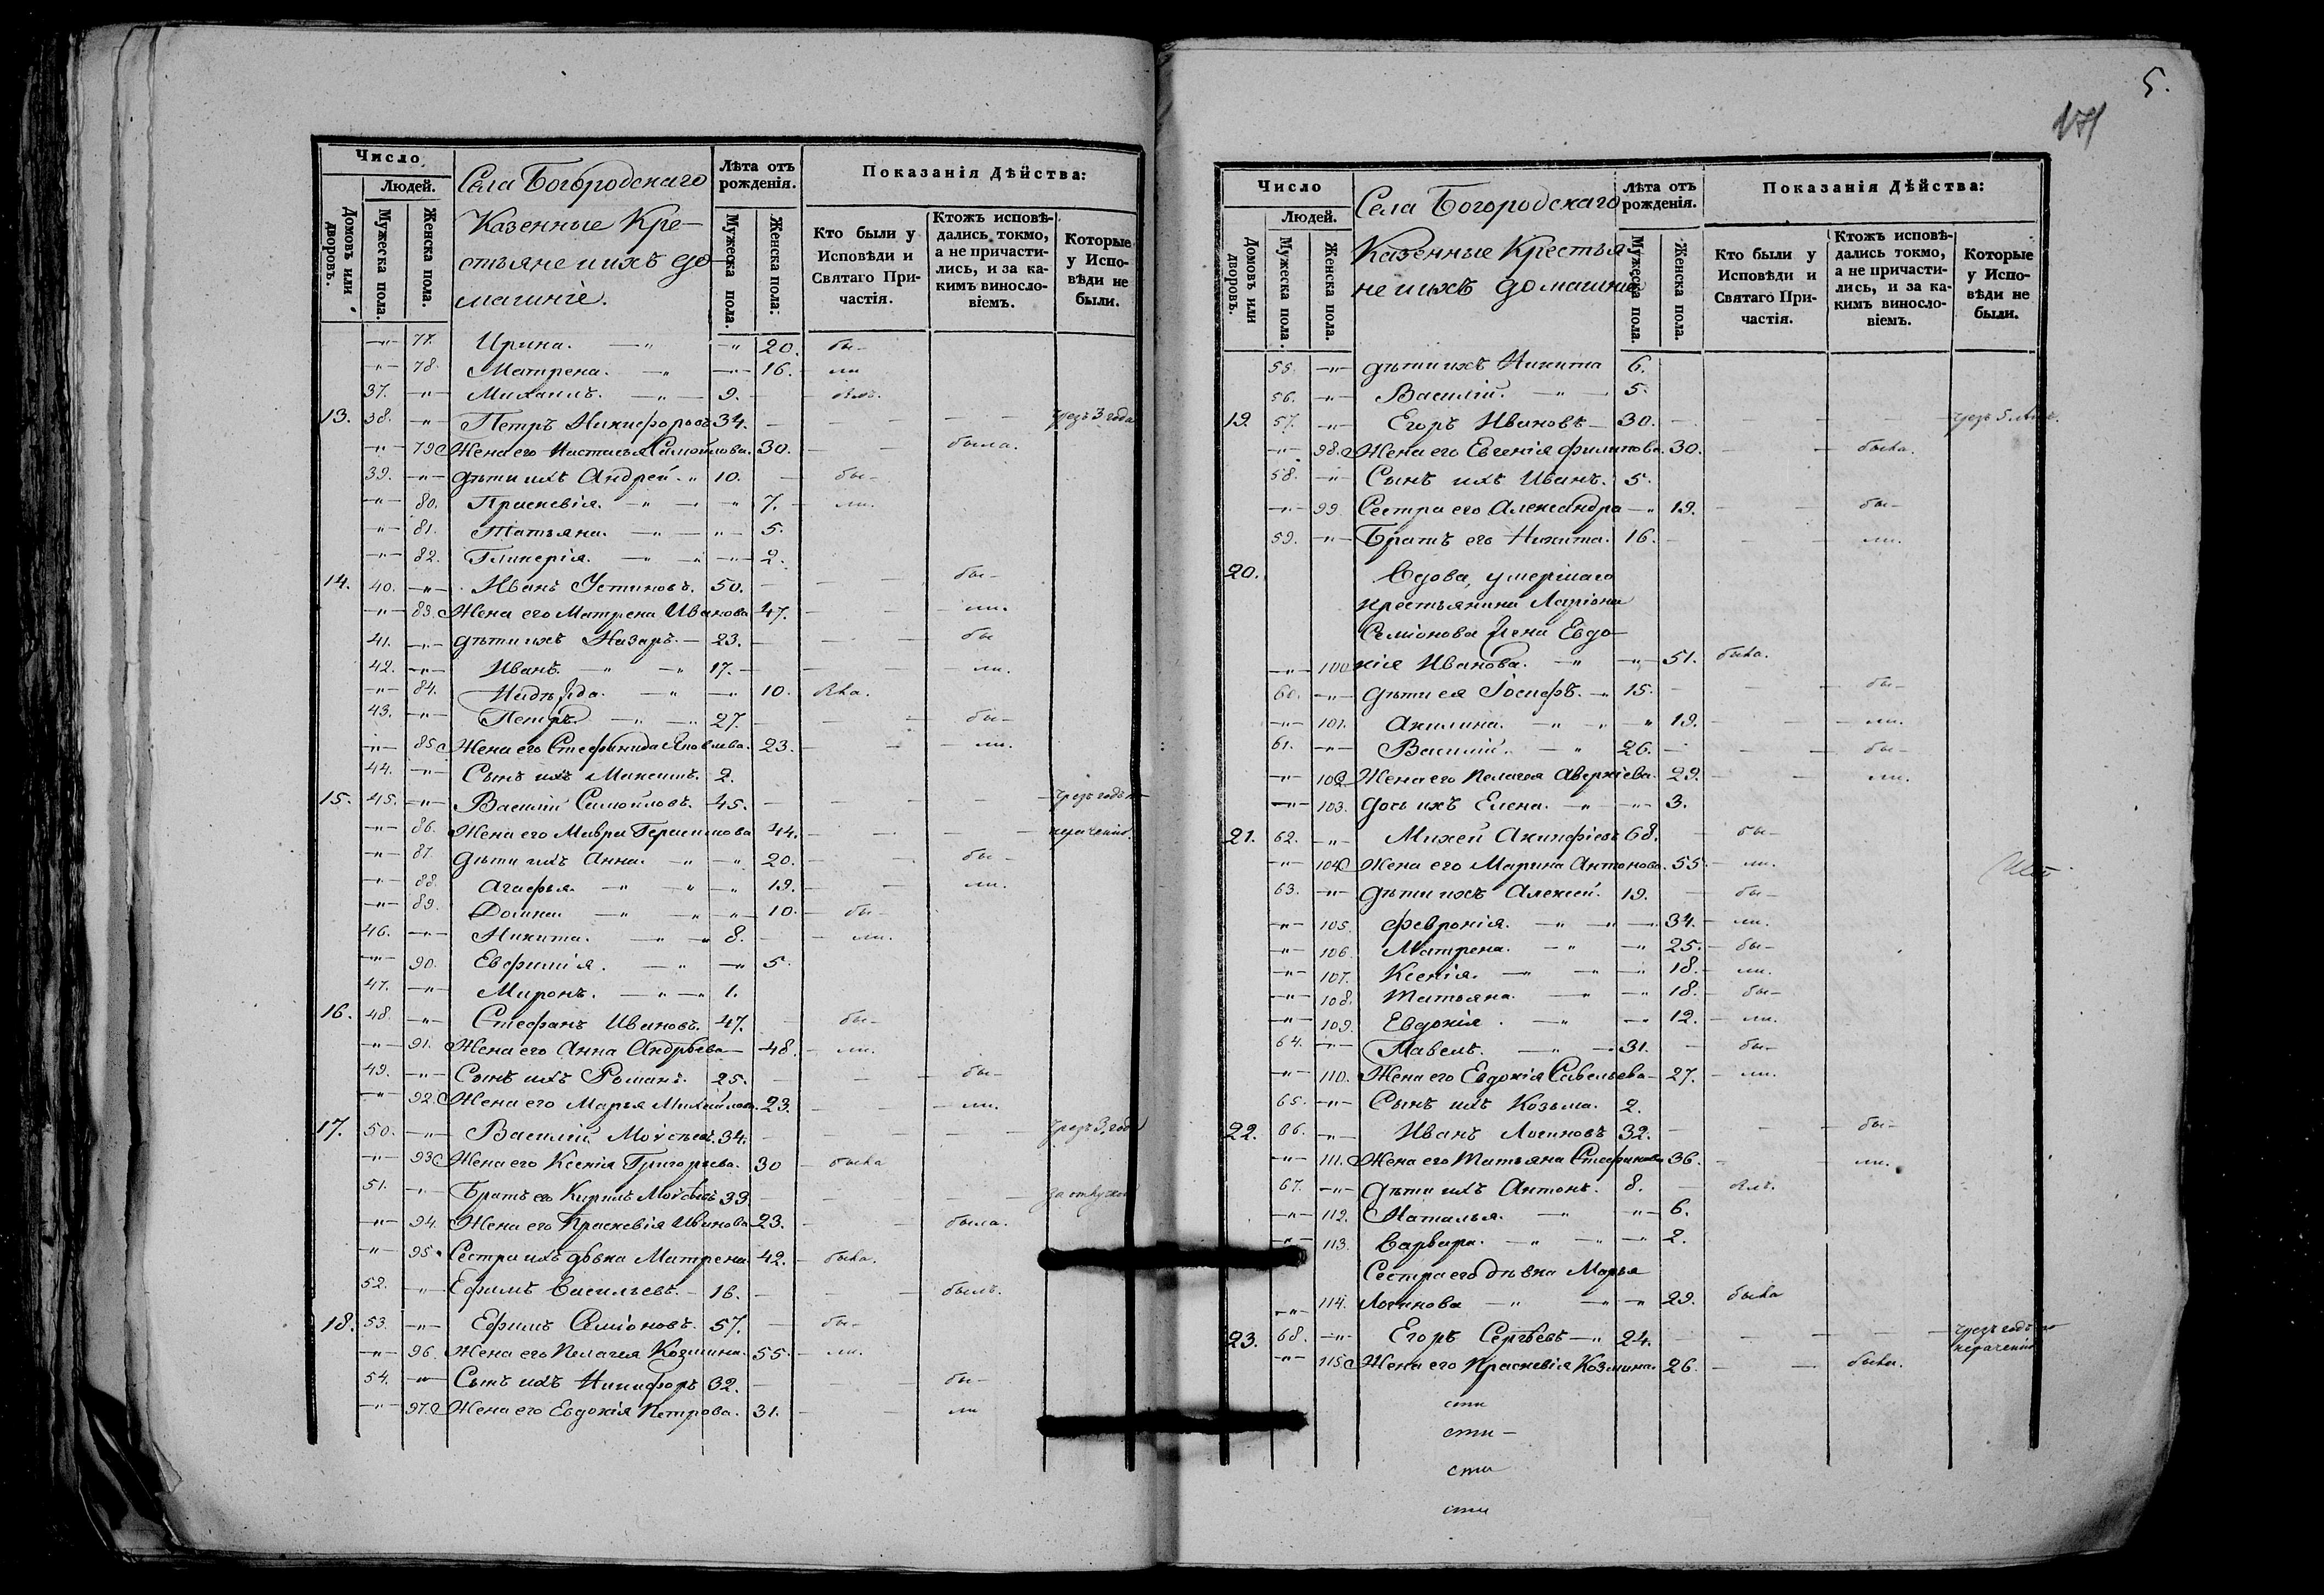 Число
Людей.
Домовъ или дворовъ.
Мужеска пола.
Женска пола.
Села Богородскаго
Казенные Кре-
стьяне и ихъ до-
машніе.
Лѣта отъ рожденія.
Мужеска пола.
Женска пола.
Показанія Дѣйства:
Кто были у Исповѣди и Святаго При-частія.
Ктожъ исповѣ-дались токмо, а не причасти-лись, и за ка-кимъ винослo-віемъ.
Которые у Испо-вѣди не были.
—"— 77. Ирина. —"— —" 20. бы-
—"— 78. Матрена. —" —"— 16. ли
37. —"— Михаилъ. —"— 9. былъ.
13. 38. —" Петръ Никифоровъ 34. — — — чрезъ 3 года
—"— 79 Жена его Настасья Самойлова. 30. — — была.
39. —"— дѣти ихъ Андрей. " 10. — бы-
—"— 80. Прасковія. —" —" —" 7. — ли.
—"— 81. Татьяна. —"— —"— 5.
—"— 82. Гликерія. —" " —"— 2.
14. 40. —"— Иванъ Устиновъ. 50. — — бы-
—"— 83. Жена его Матрена Иванова 47. — — ли.
41. —"— дѣти ихъ Назаръ. — 23. — — бы
42. —"— Иванъ. —" —" 17. — — ли.
—"— 84. Надѣжда. —" —"— 10. была.
43. —"— Петръ. —" —" 27. — — бы-
—"— 85 Жена его Стефанида Яковлева. 23. — — ли.
44. —"— Сынъ ихъ Максимъ. 2.
15. 45. —"— Василій Самойловъ. 45. — — — чрезъ годъ по
—"— 86. Жена его Мавра Герасимова 44. — — — нераченію.
—"— 87. дѣти ихъ Анна. —" —" 20. — — бы-
—"— 88. Агафья. —" —" —" 19. — — ли.
—"— 89. Домна —" —" —"— 10. — бы-
46. —"— Никита. —" —" 8. — — ли.
—"— 90. Евфимія. —" —" 5.
47. —"— Миронъ. —"—" 1.
16. 48. —"— Стефанъ Ивановъ. 47. — бы-
—"— 91. Жена его Анна Андрѣева — 48. — ли.
49. —"— Сынъ ихъ Романъ. 25. — — бы-
—"— 92. Жена его Марья Михайлова. 23. — — ли.
17. 50. —"— Василій Моѵсѣевъ. 34. — — — чрезъ 3 года
—"— 93 Жена его Ксенія Григорьева. 30 — была
51. —"— Братъ его Кирилъ Моѵсѣевъ 39 — — — за отлучкою
—"— 94. Жена его Прасковія Иванова 23. — — была.
—"— 95. Сестра ихъ дѣвка Матрена 42. — была.
52. —" Ефимъ Васильевъ. — 16. — — былъ.
18. 53. —"— Ефимъ Семіоновъ. 57. — бы-
—"— 96 Жена его Пелагея Козмина. 55. — ли.
54. —"— Сынъ ихъ Никифоръ 32. — — бы-
—"— 97. Жена его Евдокія Петрова. 31. — — ли
5.
171
Число
Людей.
Домовъ или дворовъ.
Мужеска пола.
Женска пола.
Села Богородскаго
Казенные Крестья-
не и ихъ домашніе
Лѣта отъ рожденія.
Мужеска пола.
Женска пола.
Показанія Дѣйства:
Кто были у Исповѣди и Святаго При-частія.
Ктожъ исповѣ-дались токмо, а не причасти-лись, и за ка-кимъ винослo-віемъ.
Которые у Испо-вѣди не были.
55. —"— дѣти ихъ Никита 6.
56. —"— Василій. —" — 5.
19. 57. —"— Егоръ Ивановъ — 30. — — — чрезъ 5 лѣтъ.
—"— 98. Жена его Евгенія Филипова. 30. — — была.
58. —"— Сынъ ихъ Иванъ. 5.
—"— 99. Сестра его Александра —" 19. — — бы-
59. —"— Братъ его Никита. 16. — — ли.
20. Вдова, умершаго
крестьянина Ларіона
Семіонова жена Евдо-
—"— 100 кія Иванова. —" —"— 51. была.
60. —"— дѣти ея Іосифъ. —" 15. — — бы-
—"— 101. Акилина. —" —" —" 19. — — ли.
61. —"— Василій. —" 26. — — бы-
—"— 102 Жена его Пелагея Аверкіева. 29. — — ли.
—"— 103. дочь ихъ Елена. —" —"— 3.
21. 62. —"— Михей Акинфіевъ 68. — бы-
—"— 104 Жена его Марина Антонова. 55 — ли.
63. —"— дѣти ихъ Алексей. 19. — бы-
—"— 105. Февронія. —" —" —" 34. — ли.
—"— 106. Матрена. —" —" 25. — бы-
—"— 107. Ксенія. —" —" —" 18. — ли.
—"— 108. Татьяна. —" —" 18. — бы-
—"— 109. Евдокія. —" —" 12. — ли.
64. —"— Павелъ. —" — 31. — бы-
—"— 110. Жена его Евдокія Савельева — 27. — ли.
65. —"— Сынъ ихъ Козьма. 2.
22. 66. —"— Иванъ Логиновъ 32. — — бы-
—"— 111. Жена его Татьяна Стефанова 36. — — ли.
67. —"— дѣти ихъ Антонъ. 8. — былъ.
—"— 112. Наталья. —" —"— 6.
—"— 113. Варвара. —" —" —" 2.
Сестра его дѣвка Марья
—"— 114. Логинова —" —" —" 29. была
23. 68. —"— Егоръ Сергѣевъ —" 24. — — — чрезъ годъ по нераченію
—"— 115 Жена его Прасковія Козмина. 26. — — была.
сти
сти —
сти
сти